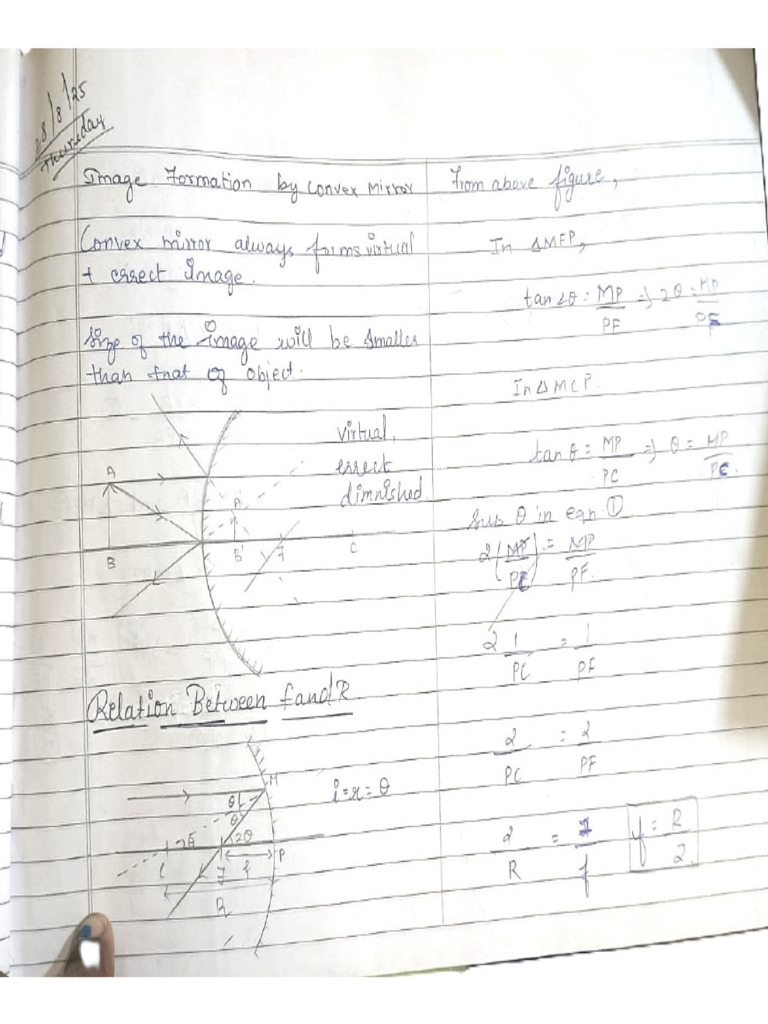 28/8/25
Thursday
Image Formation by Convex Mirror
Convex mirror always forms virtual
+ errect Image.
Size of the image will be smaller
than that of object.
virtual,
errect
diminshed
A
A'
B
B'
F
C
Relation Between f and R
M
i=r=θ
θ
θ
2θ
2θ
P
C
F
f
R
From above figure,
In ΔMFP,
tan2θ = MP/PF ⇒ 2θ = MP/PF
In ΔMCP
tanθ = MP/PC ⇒ θ = MP/PC.
Sub θ in eqn ①
2(MP/PC) = MP/PF.
2 1/PC = 1/PF
2/PC = 2/PF
2/R = 1/f
f = R/2.